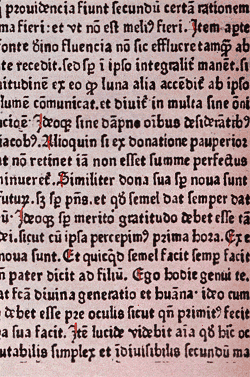 i prouidencia fiunt secundū certā rationem
ma fieri: et vt nō est meliꝰ fieri. Itē apte
fonte ꝯtino fluencia nō sic effluere tamꝙ̄ al
te recedit. sed sp̄ i ipso integralit̄ manēt. si
litudinē ex eo ꝙ luna alia accēdit ab
lumē cōmunicat. et diuit̄ in multa sine oi
Ideoꝫ sine dāpno oībꝰ desiderātibꝰ
iacobꝰ. Alioquin si ex donatione pauperior
at nō retinet iā non esset summe perfectus
Similiter dona sua sp̄ noua sunt
futur̄. sꝫ sp̄ p̄ns. et ꝙ semel dat semper dat
ū. Ideoꝫ sp̄ merito gratitudo debet esse rā
dei. sicut cū ipsa percepimꝰ prima hora. Ex
noua sunt. Et quicqd̄ semel facit semp̄ facit
n̄ pater dicit ad filiū. Ego hodie genui te.
at fc̄ā diuina generatio et huāna. ideo cum
debet esse pre oculis sicut qn̄ primitꝰ fecit
na sua facit. Itē lucide videbit aīa ꝙ h̄ic oc
utabilis simplex et īdiuisibilis secundū ma